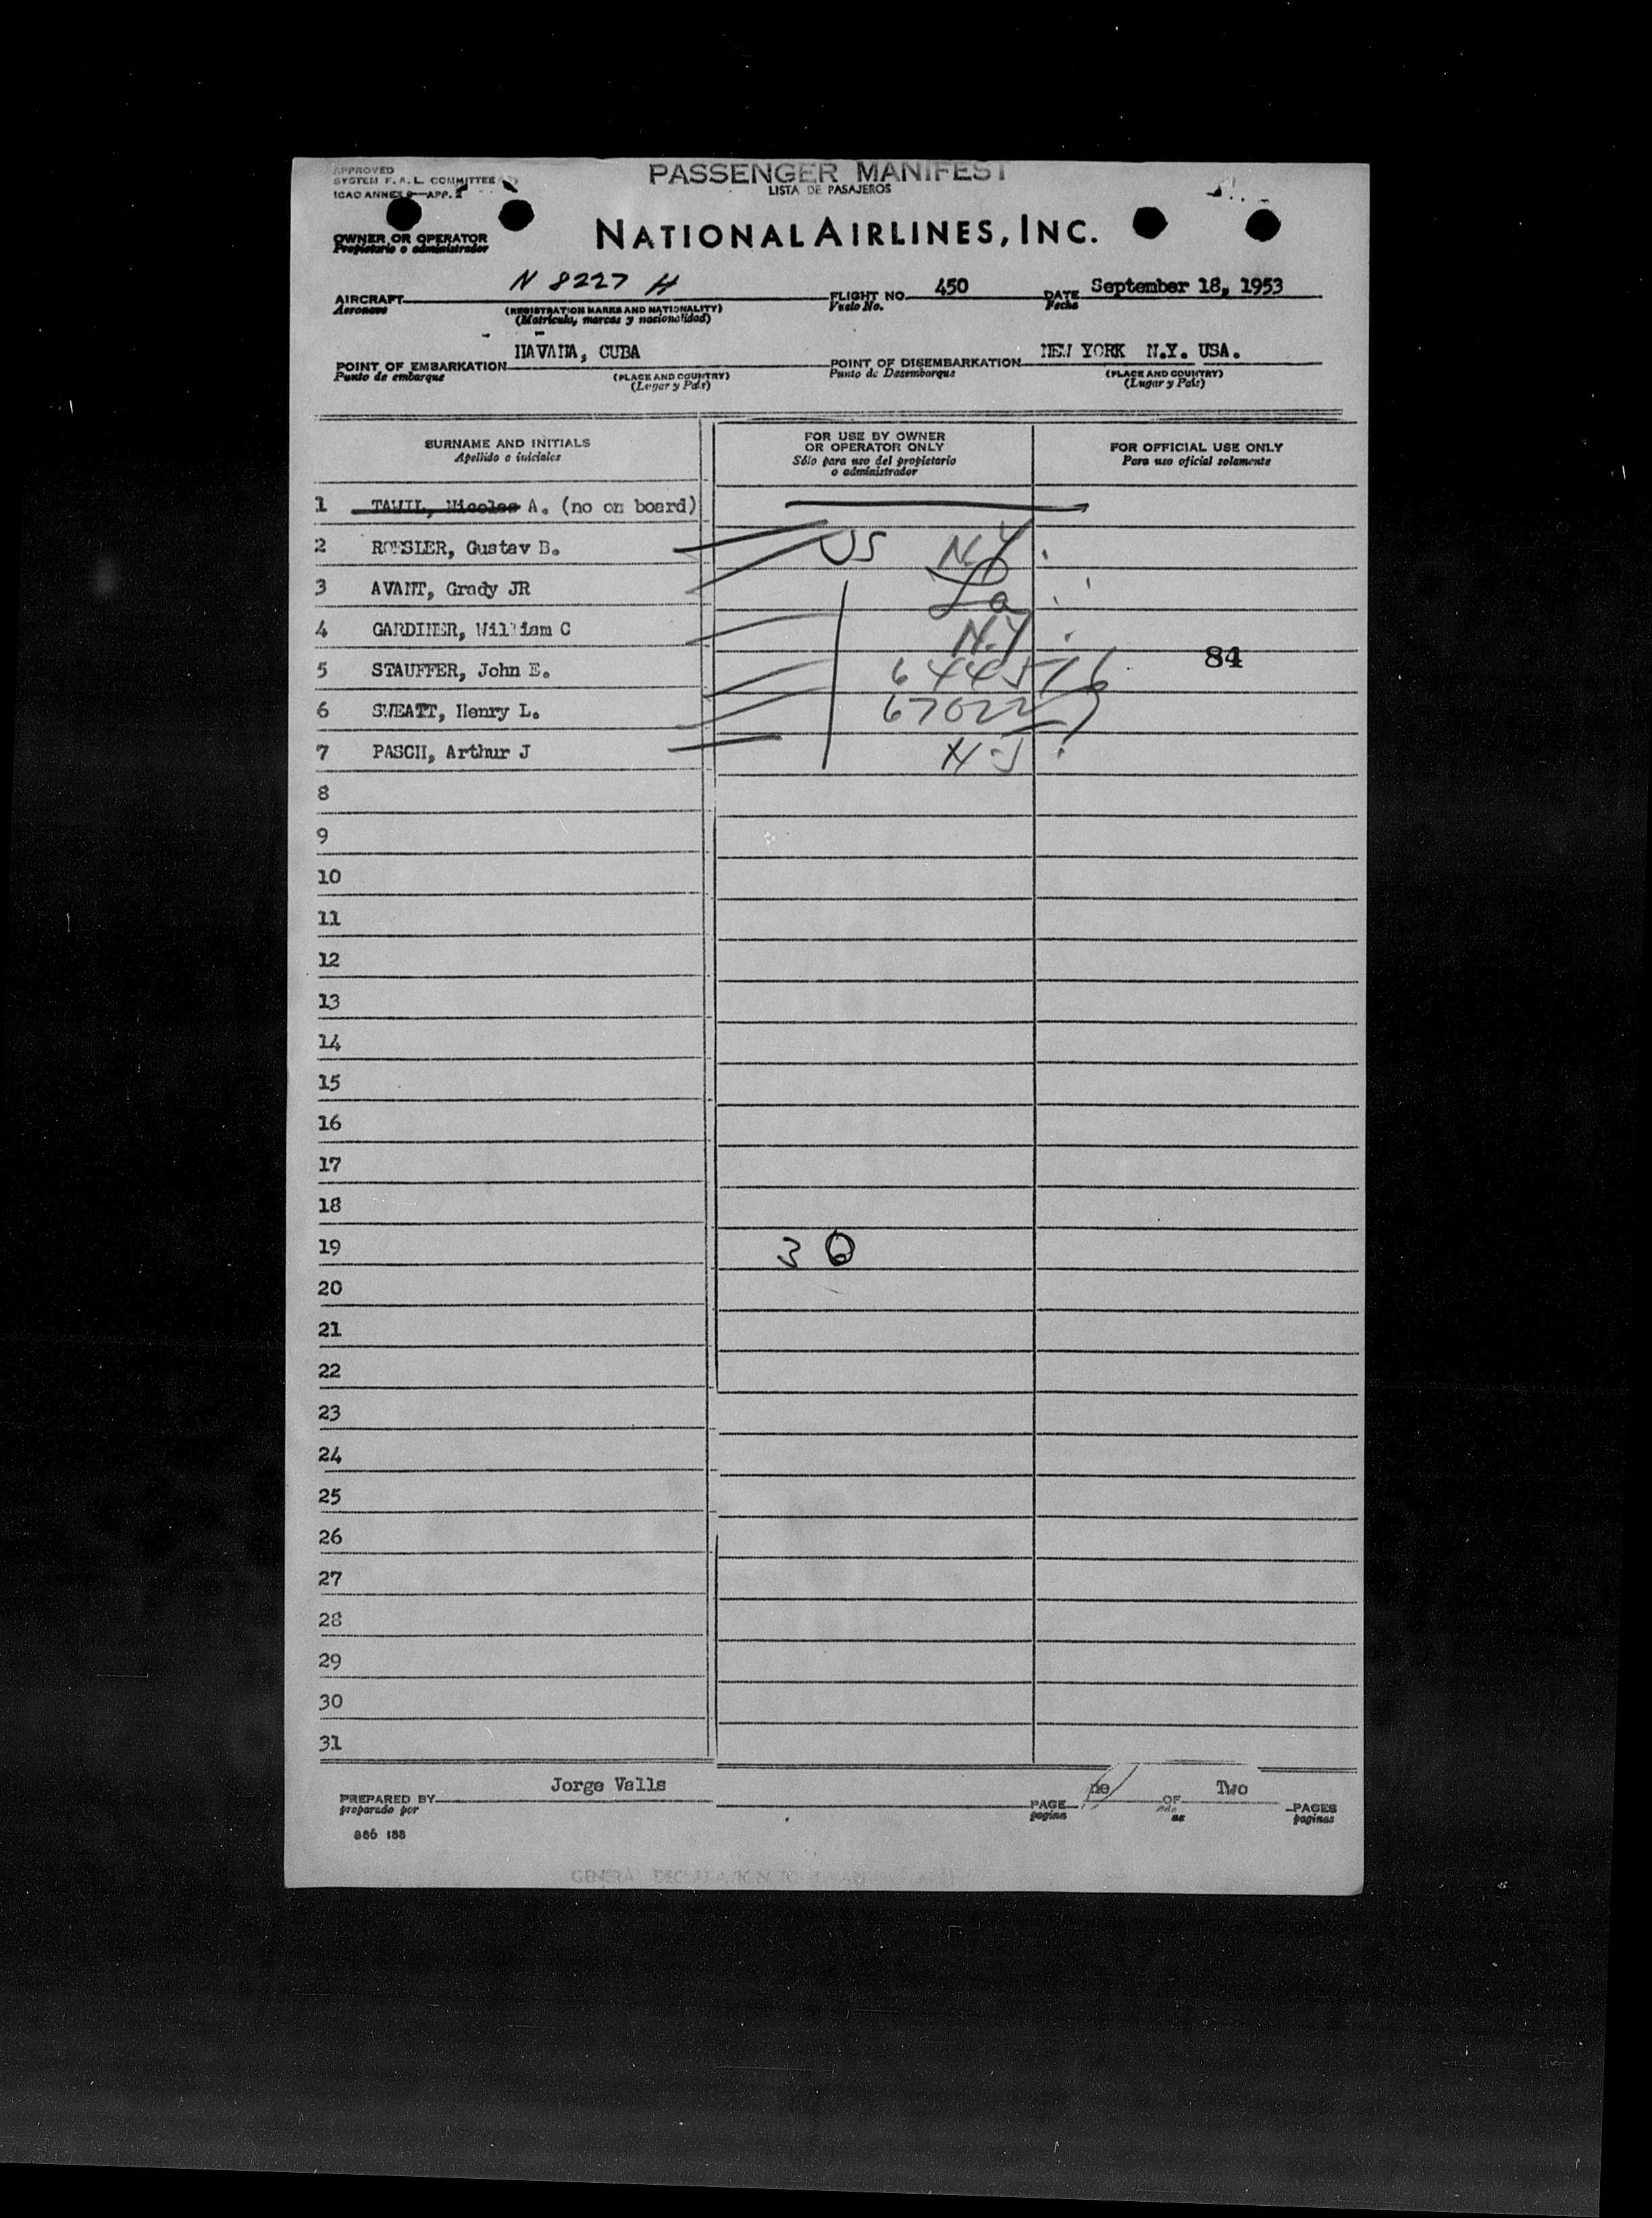 APPROVED
SYSTEM F. A. L. COMMITTEE
ICAO ANNEX 9—APP. 2
PASSENGER MANIFEST
LISTA DE PASAJEROS
OWNER OR OPERATOR
Propietario o administrador
NATIONAL AIRLINES, INC.
AIRCRAFT N 8227 H FLIGHT NO. 450 DATE September 18, 1953
Aeronave (REGISTRATION MARKS AND NATIONALITY) Vuelo No. Fecha
(Matricula, marcas y nacionalidad)
POINT OF EMBARKATION HAVANA, CUBA POINT OF DISEMBARKATION NEW YORK N.Y. USA.
Punto de embarque (PLACE AND COUNTRY) Punto de Desembarque (PLACE AND COUNTRY)
(Lugar y País) (Lugar y País)
SURNAME AND INITIALS
Apellido e iniciales
FOR USE BY OWNER
OR OPERATOR ONLY
Sólo para uso del propietario
o administrador
FOR OFFICIAL USE ONLY
Para uso oficial solamente
1 TAWIL, Nicolas A. (no on board)
2 ROESLER, Gustav B. US N.Y.
3 AVANT, Grady JR La
4 GARDINER, William C N.Y.
5 STAUFFER, John E. 644576 84
6 SWEATT, Henry L. 67022
7 PASCH, Arthur J N.J.
8
9
10
11
12
13
14
15
16
17
18
19 3
20
21
22
23
24
25
26
27
28
29
30
31
PREPARED BY Jorge Valls PAGE ne OF Two PAGES
preparado por pagina de paginas
866 188